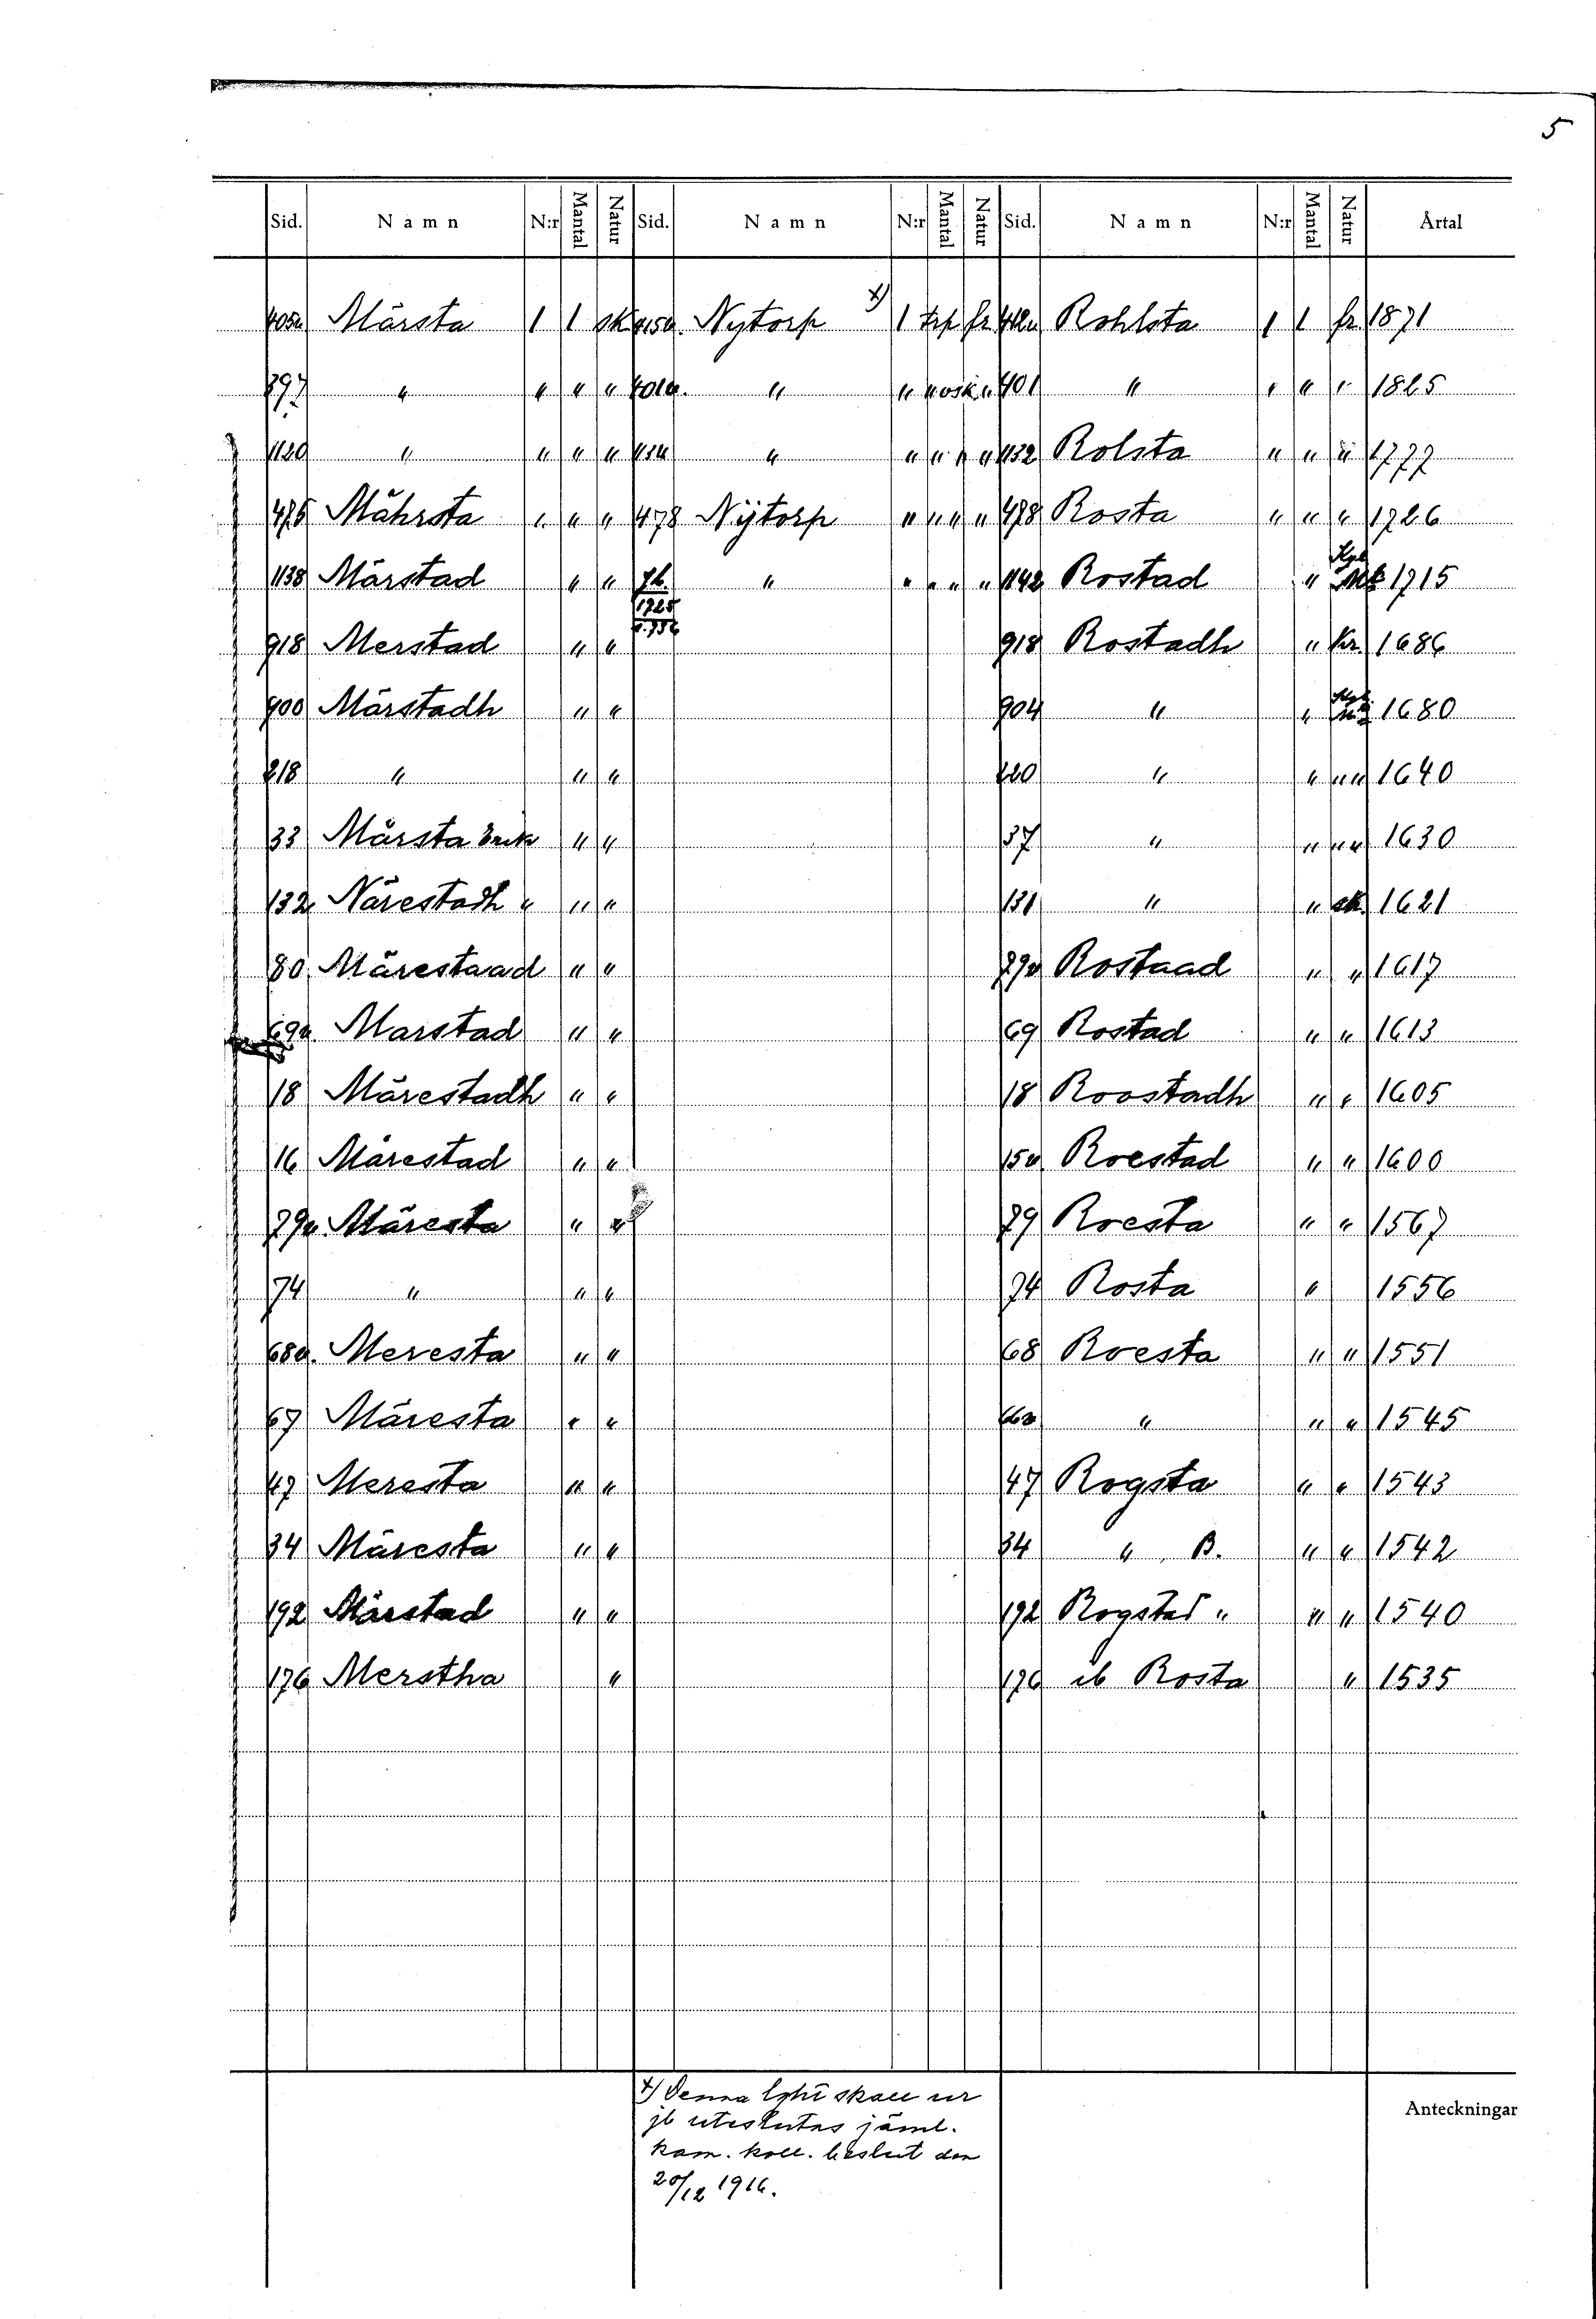 5
Sid. Namn N:r Mantal Natur Sid. Namn N:r Mantal Natur Sid. Namn N:r Mantal Natur Årtal
405a Märsta 1 1 sk 415a. Nytorp x) 1 trp fr Rohlsta 1 1 fr 1871
397 " " " " 401a. " " " osk " 401 " " " " 1825
1129 " " " " 1134 " " " " " 1132 Rolsta " " " 1777
475 Måhrsta " " " 478 Nÿtorp " " " " 478 Rosta " " " 1726
1138 Märstad " " Jb. 1725 " " " " " 1142 Rostad " 1715
918 Merstad " " 918 Rostadh " kr. 1686
900 Märstadh " " 904 " " 1680
218 " " " 220 " " " " 1640
33 Märsta Erik " " 37 " " " " 1630
132 Närestadh " " " 131 " " sk. 1621
80 Märestaad " " 79a Rostaad " " 1617
69a. Marstad " " 69 Rostad " " 1613
18 Märestadh " " 18 Roostadh " " 1605
16 Märestad " " 15a Roestad " " 1600
79a. Märesta " " 79 Roesta " " 1567
74 " " " 74 Rosta " 1556
68a. Meresta " " 68 Roesta " " 1551
67 Märesta " " 66a " " " 1545
47 Meresta " " 47 Rogsta " " 1543
34 Märesta " " 34 " B. " " 1542
192 Märstad " " 192 Rogstad " " " 1540
176 Merstha " 176 ib Rosta " 1535
x) Denna lght skall ur
jb uteslutas jäml.
kam. koll. beslut den
20/12 1916.
Anteckningar